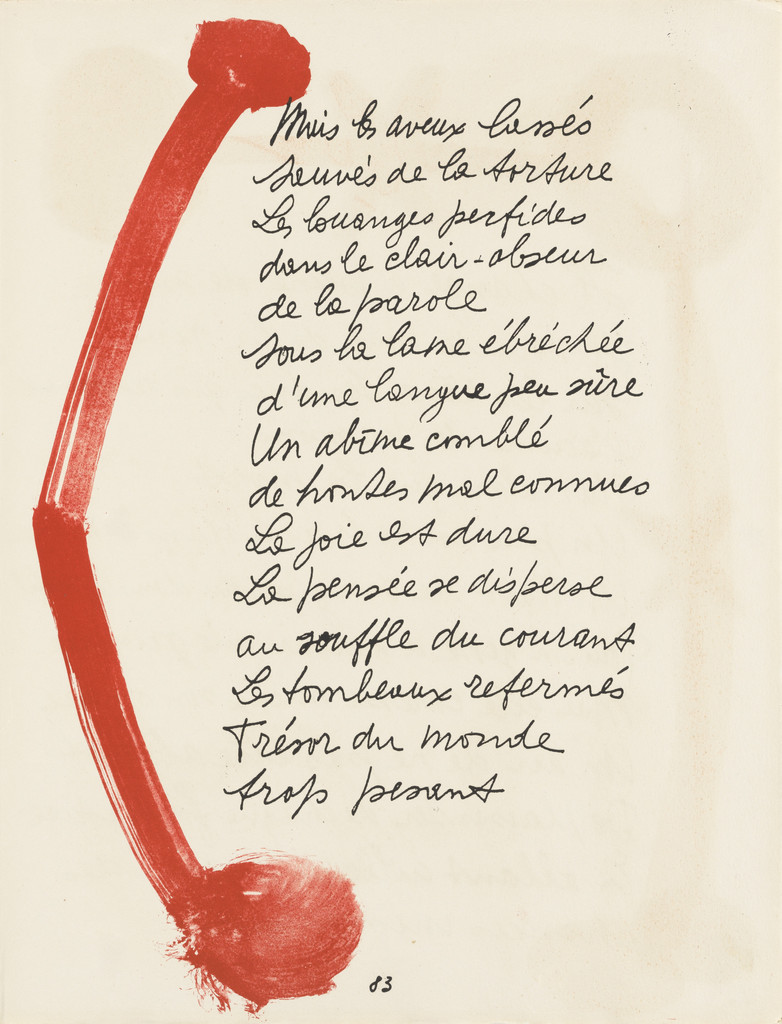 Mais les aveux lassés
sauvés de la torture
Les louanges perfides
dans le clair-obscur
de la parole
sous la lame ébréchée
d'une langue peu sûre
Un abîme comblé
de hontes mal connues
La joie est dure
La pensée se disperse
au souffle du courant
Les tombeaux refermés
Trésor du monde
trop pesant
83